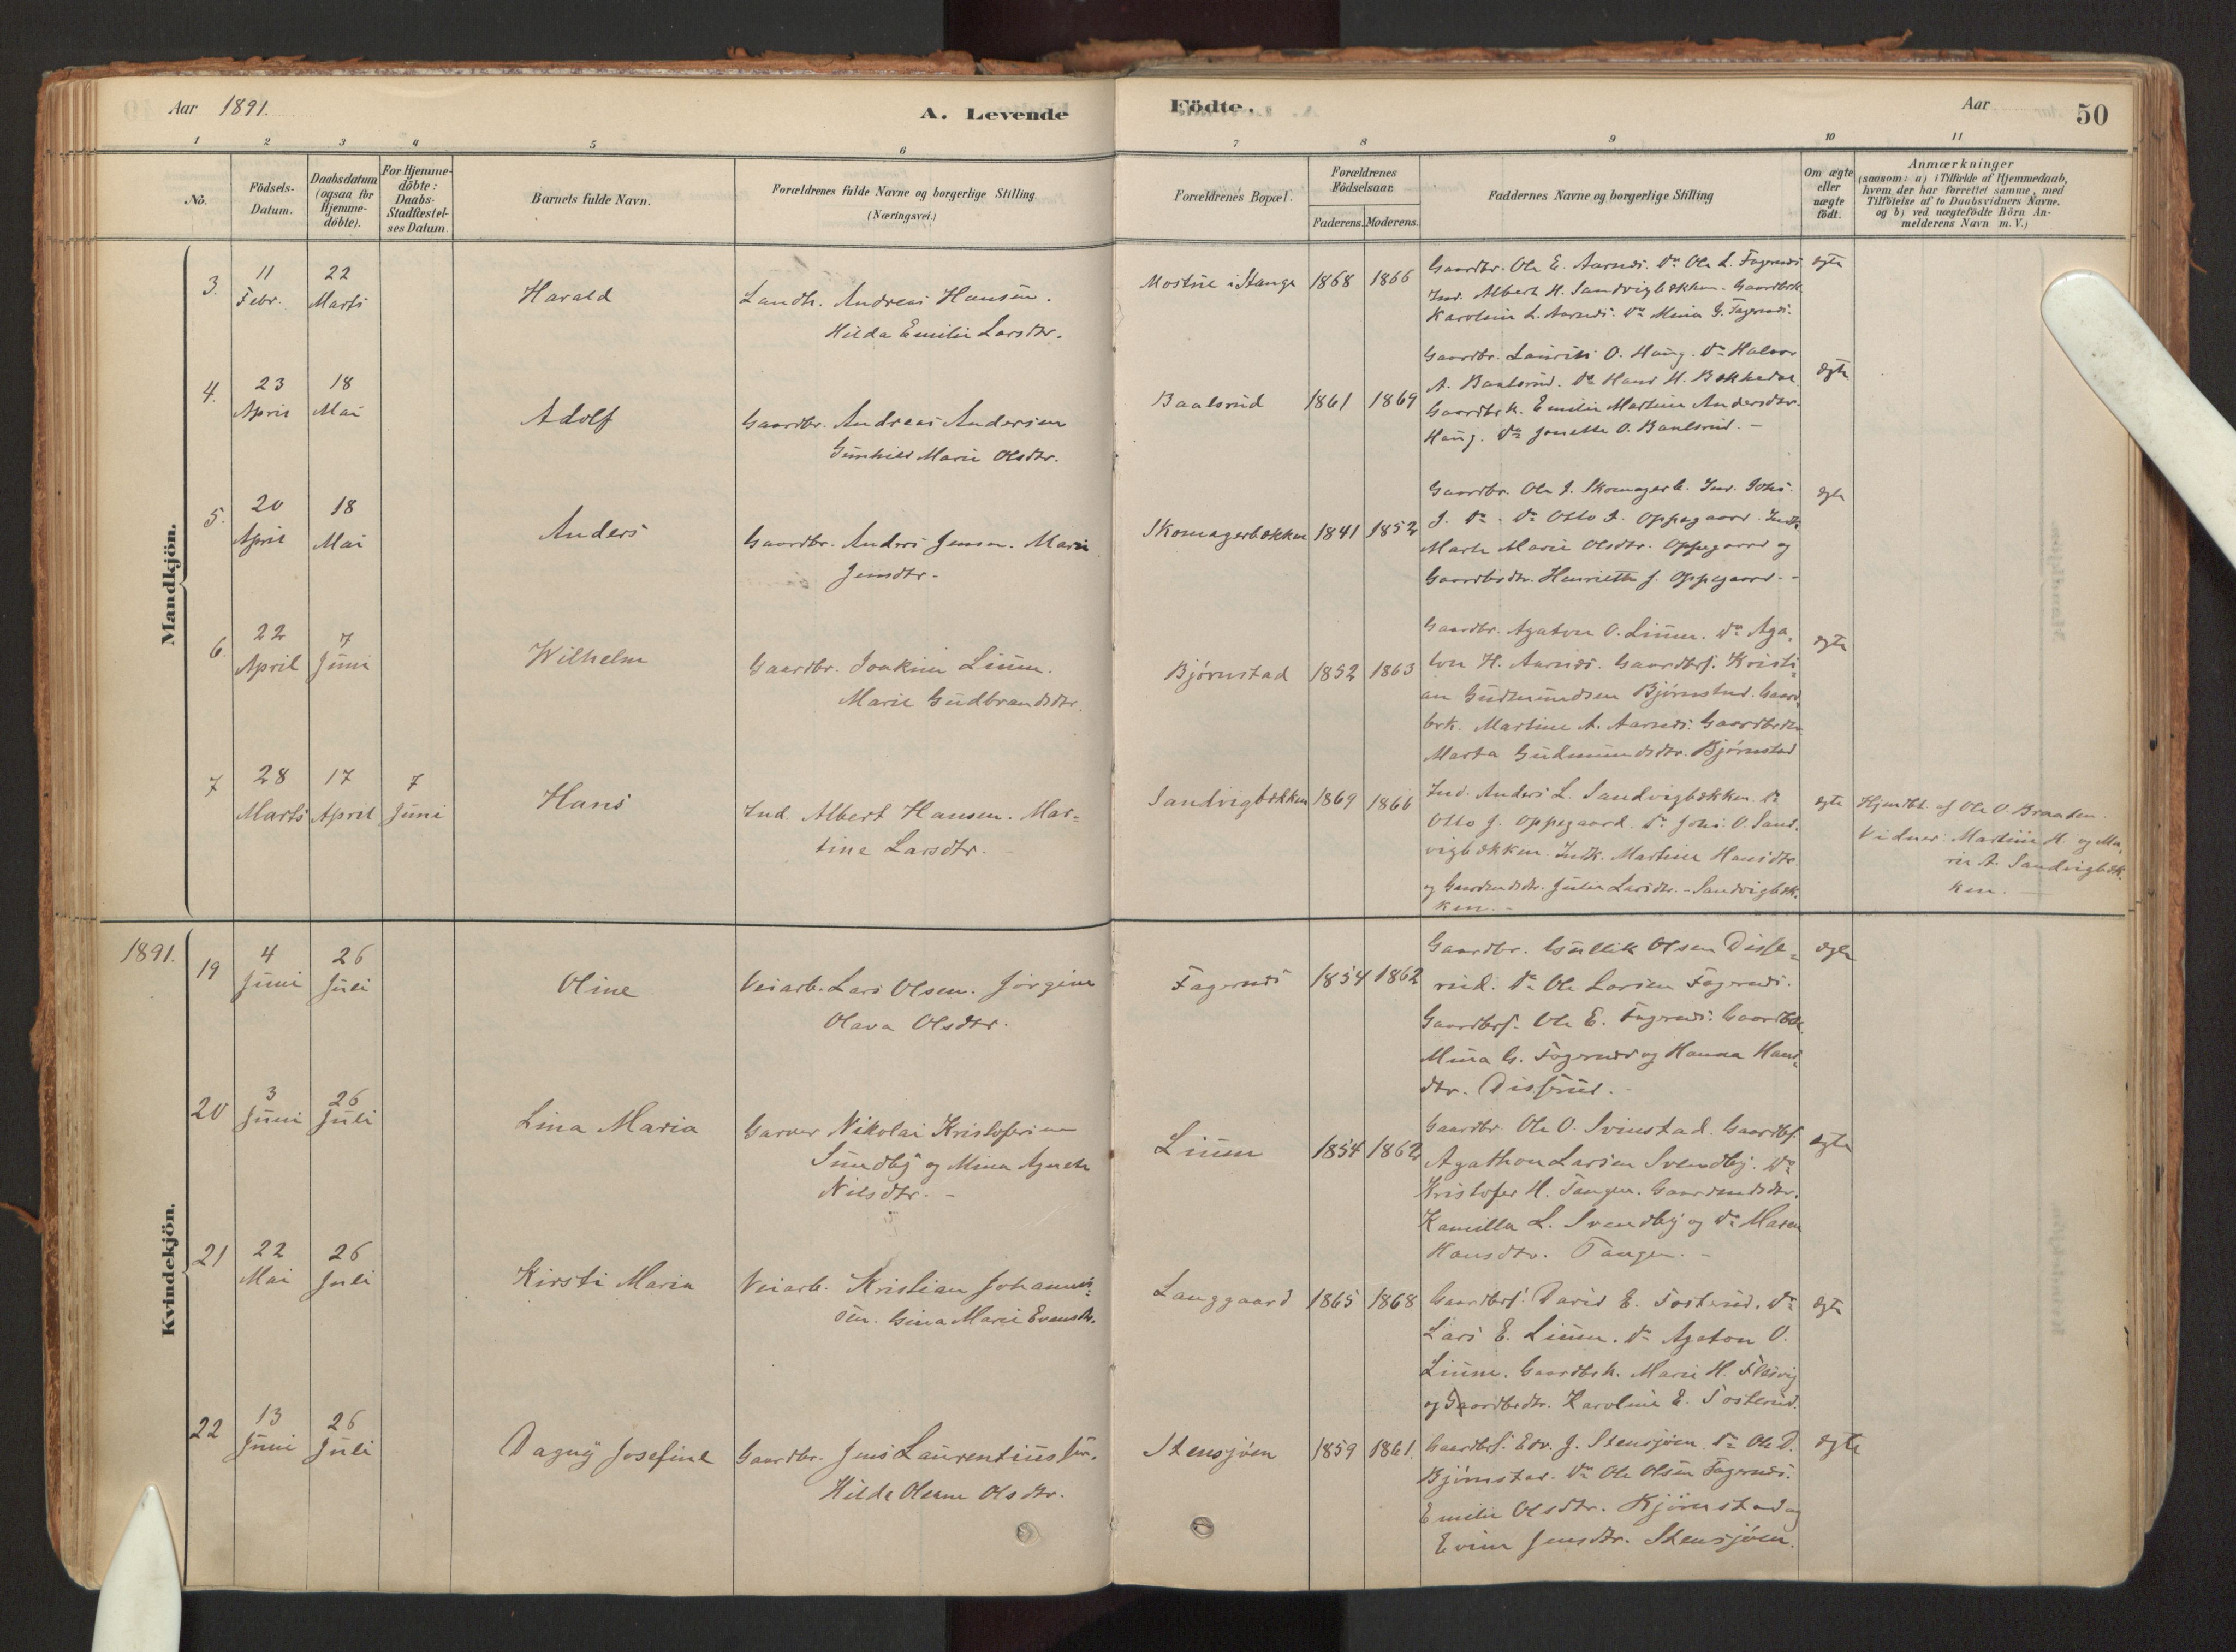 Aar 1891.
A. Levende
Födte.
Aar
50
1 2 3 4 5 6 7 8 9 10 11
No.
Födsels-
Datum.
Daabsdatum
(ogsaa for
Hjemme-
döbte).
For Hjemme-
döbte:
Daabs-
Stadfæstel-
ses Datum.
Barnets fulde Navn.
Forældrenes fulde Navne og borgerlige Stilling
(Næringsvei.)
Forældrenes Bopæl.
Forældrenes
Födselsaar.
Faderens. Moderens.
Faddernes Navne og borgerlige Stilling
Om ægte
eller
uægte
födt.
Anmærkninger
(saasom: a) i Tilfælde af Hjemmedaab,
hvem der har forrettet samme, med
Tilföielse af to Daabsvidners Navne,
og b) ved uægtefödte Börn An-
melderens Navn m. V.)
Mandkjön.
3.
11
Febr.
22
Marts
Harald
Landh. Andreas Hansen.
Hilda Emilie Larsdtr.
Mostue i Stange
1868
1866
Gaardbr. Ole E. Aarnæs. Do Ole L. Fagernæs
Ind. Albert H. Sandvigbækken. Gaardbrk.
Karoline L. Aarnæs. Do Mina G. Fagernæs.
ægte
4.
23
April
18
Mai
Adolf
Gaardbr. Andreas Andersen
Gunhild Marie Olsdtr.
Baalsrud
1861
1869
Gaardbr. Laurits O. Haug. Do Halvor
A. Baalsrud. Do Hans H. Bækkedal
Gaardbrk. Emilie Martine Andersdtr.
Haug. Do Jonette O. Baalsrud. -
ægte
5.
20
April
18
Mai
Anders
Gaardbr. Anders Jensen. Marie
Jensdtr.
Skomagerbækken
1841
1852
Gaardbr. Ole J. Skomagerb. Ind. Johs.
J. Do. Do Otto J. Oppegaard. Indk.
Marte Marie Olsdtr. Oppegaard og
Gaardbrdtr. Henriette J. Oppegaard. -
ægte
6.
22
April
7
Juni
Wilhelm
Gaardbr. Joakim Lium.
Marie Gudbrandsdtr.
Bjørnstad
1852
1863
Gaardbr. Agaton O. Lium. Do Aga-
ton H. Aarnæs. Gaardbrs. Kristi-
an Gudmundsen Bjørnstad. Gaard-
brk. Martine A. Aarnæs. Gaardbrdtr.
Marta Gudmundsdtr. Bjørnstad
ægte
7
28
Marts
17
April
7
Juni
Hans
Ind. Albert Hansen. Mar-
tine Larsdtr. -
Sandvigbækken
1869
1866
Ind. Anders L. Sandvigbækken. Do
Otto J. Oppegaard. Do Johs. O. Sand-
vigbækken. Indk. Martine Hansdtr.
og Gaardmdsdtr. Julie Larsdtr. - Sandvigbæk-
ken. -
ægte
Hjemdbt. af Ole O. Braaten.
Vidner: Martine H. og Ma-
rie A. Sandvigbæk-
ken. -
1891.
Kvindekjön.
19
4
Juni
26
Juli
Oline
Veiarb. Lars Olsen. Jørgine
Olava Olsdtr.
Fagernæs
1854
1862
Gaardbr. Gullik Olsen Disse-
rud. Do Ole Larsen Fagernæs.
Gaardbrs. Ole E. Fagernæs. Gaardbrk.
Mina G. Fagernæs og Hanna Hans-
dtr. Disserud. -
ægte
20
3
Juni
26
Juli
Lina Maria
Garver Nikolai Kristofersen
Sundby og Mina Agnete
Nilsdtr. -
Lium
1854
1862
Gaardbr. Ole O. Svinstad. Gaardbs.
Agathon Larsen Svendby. Do
Kristofer H. Tangen. Gaardmdsdtr.
Kamilla L. Svendby og Do Maren
Hansdtr. Tangen. -
ægte
21
22
Mai
26
Juli
Kirsti Maria
Veiarb. Kristian Johannes-
sen. Gina Marie Evensdtr.
Langgaard
1865
1868
Gaardbrs. David E. Tosterud. Do
Lars E. Lium. Do Agaton O.
Lium. Gaardbrk. Marie H. Flesvig
og Gaardbrdtr. Karoline E. Tosterud.
ægte
22
13
Juni
26
Juli
Dagny Josefine
Gaardbr. Jens Laurentius Jensen.
Hilda Oleane Olsdtr.
Stensjøen
1859
1861.
Gaardbrs. Edv. J. Stensjøen. Do Ole D.
Bjørnstad. Do Ole Olsen Fagernæs.
Emilie Olsdtr. Bjørnstad og
Evine Jensdtr. Stensjøen.
ægte